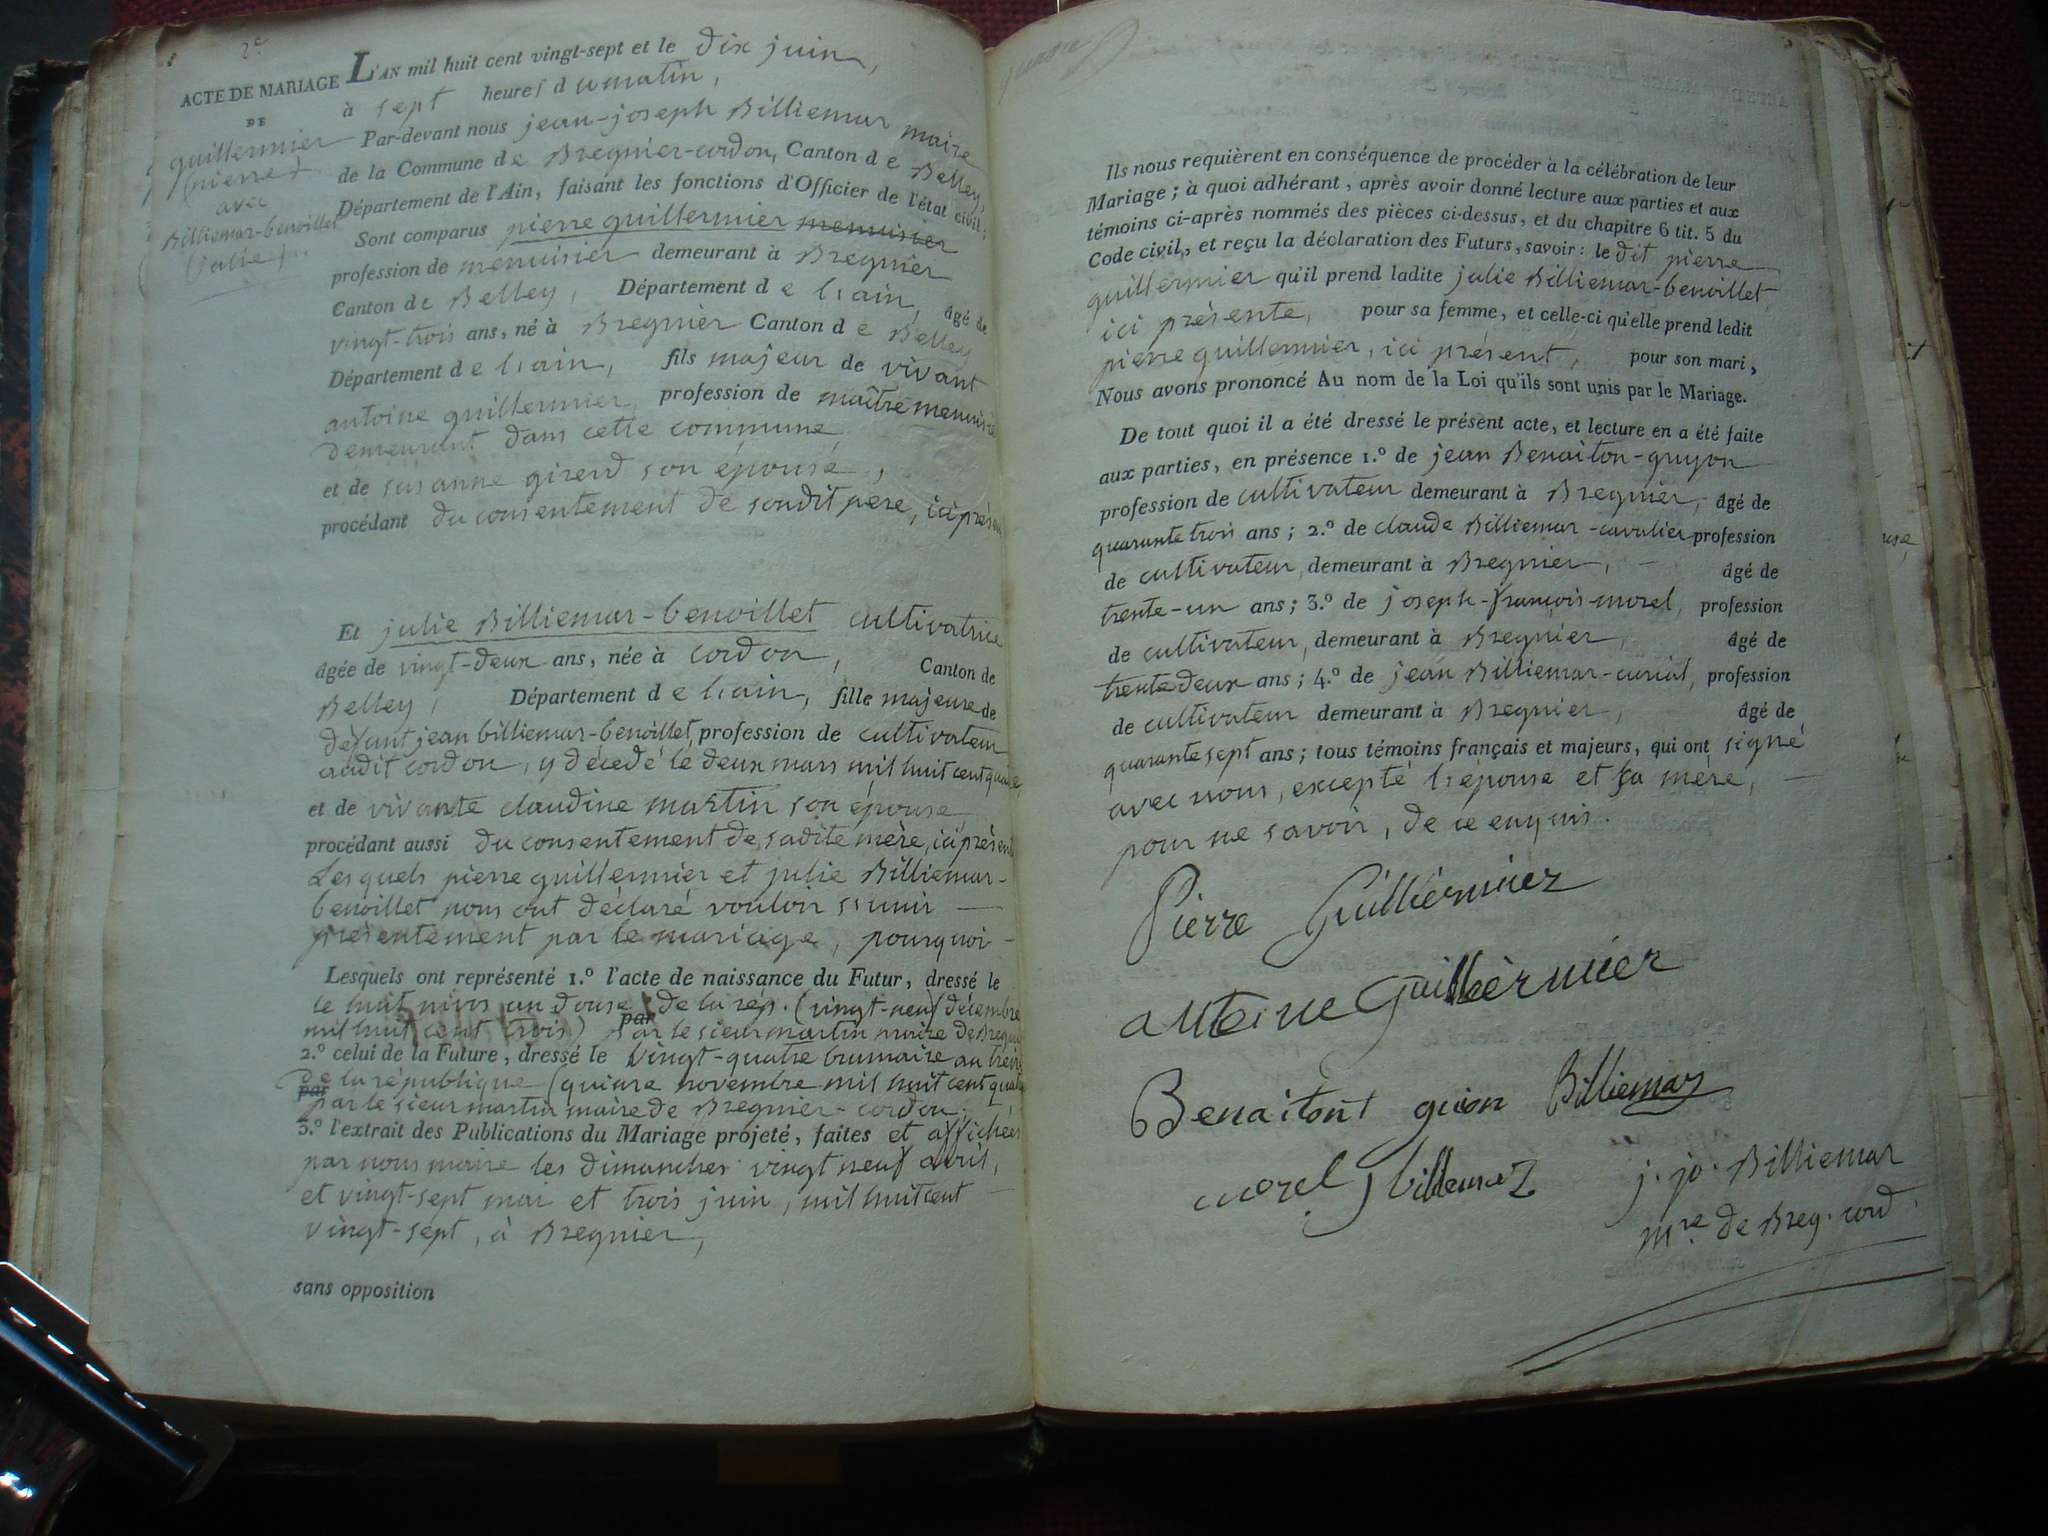 2.e
ACTE DE MARIAGE
DE
guillermier
(pierre)
avec
Billiemar-benoillet
(julie)
L'AN mil huit cent vingt-sept et le dix juin,
à sept heures du matin,
Par-devant nous jean-joseph Billiemar maire
de la Commune de Bregnier-cordon, Canton de Belley,
Département de l'Ain, faisant les fonctions d'Officier de l'état civil,
Sont comparus pierre guillermier menuisier
profession de menuisier demeurant à Bregnier
Canton de Belley, Département de l'ain, âgé de
vingt-trois ans, né à Bregnier Canton de Belley
Département de l'ain, fils majeur de vivant
antoine guillermier, profession de maître menuisie
demeurant dans cette commune,
et de susanne girerd son épouse,
procédant du consentement de soudit pere, ici présen
Et julie Billiemar-benoillet cultivatrice
âgée de vingt-deux ans, née à cordon, Canton de
Belley, Département de l'ain, fille majeure de
défunt jean billiemar-benoillet, profession de cultivateur
audit cordon, y décédé le deux mars mil huit cent
et de vivante claudine martin son épouse
procédant aussi du consentement de sadite mère, ici présen
Lesquels pierre guillermier et julie Billiemar-
benoillet nous ont déclaré vouloir s'unir
présentement par le mariage, pourquoi
Lesquels ont représenté 1.º l'acte de naissance du Futur, dressé le
le huit nivos an douse de la rép. (vingt-neuf décembre
mil huit cent trois) par par le sieur martin maire de Bregni
2.º celui de la Future, dressé le vingt-quatre brumaire an treiz
de la république (quinze novembre mil huit cent quat
par par le sieur martin maire de Bregnier-cordon.
3.º l'extrait des Publications du Mariage projeté, faites et affichées
par nous maire les dimanches vingt neuf avril,
et vingt-sept mai et trois juin, mil huit cent
vingt-sept, à Bregnier,
sans opposition
Ils nous requièrent en conséquence de procéder à la célébration de leur
Mariage; à quoi adhérant, après avoir donné lecture aux parties et aux
témoins ci-après nommés des pièces ci-dessus, et du chapitre 6 tit. 5 du
Code civil, et reçu la déclaration des Futurs, savoir: le dit pierre
guillermier qu'il prend ladite julie Billiemar-benoillet
ici présente, pour sa femme, et celle-ci qu'elle prend ledit
pierre guillermier, ici présent, pour son mari,
Nous avons prononcé Au nom de la Loi qu'ils sont unis par le Mariage.
De tout quoi il a été dressé le présent acte, et lecture en a été faite
aux parties, en présence 1.º de jean Benaiton-guyon
profession de cultivateur demeurant à Bregnier, âgé de
quarante trois ans; 2.º de claude Billiemar-cavalier profession
de cultivateur, demeurant à Bregnier, âgé de
trente-un ans; 3.º de joseph-françois morel, profession
de cultivateur, demeurant à Bregnier, âgé de
trente deux ans; 4.º de jean Billiemar-curial, profession
de cultivateur demeurant à Bregnier, âgé de
quarante sept ans; tous témoins français et majeurs, qui ont signé
avec nous, excepté l'épouse et sa mère,
pour ne savoir, de ce enquis.
Pierre Guilliérmiez
antoine Guilliérmier
Benaitont guion Billiemaz
morel j billemaz j. jo. Billiemar
m.re de Breg. cord.